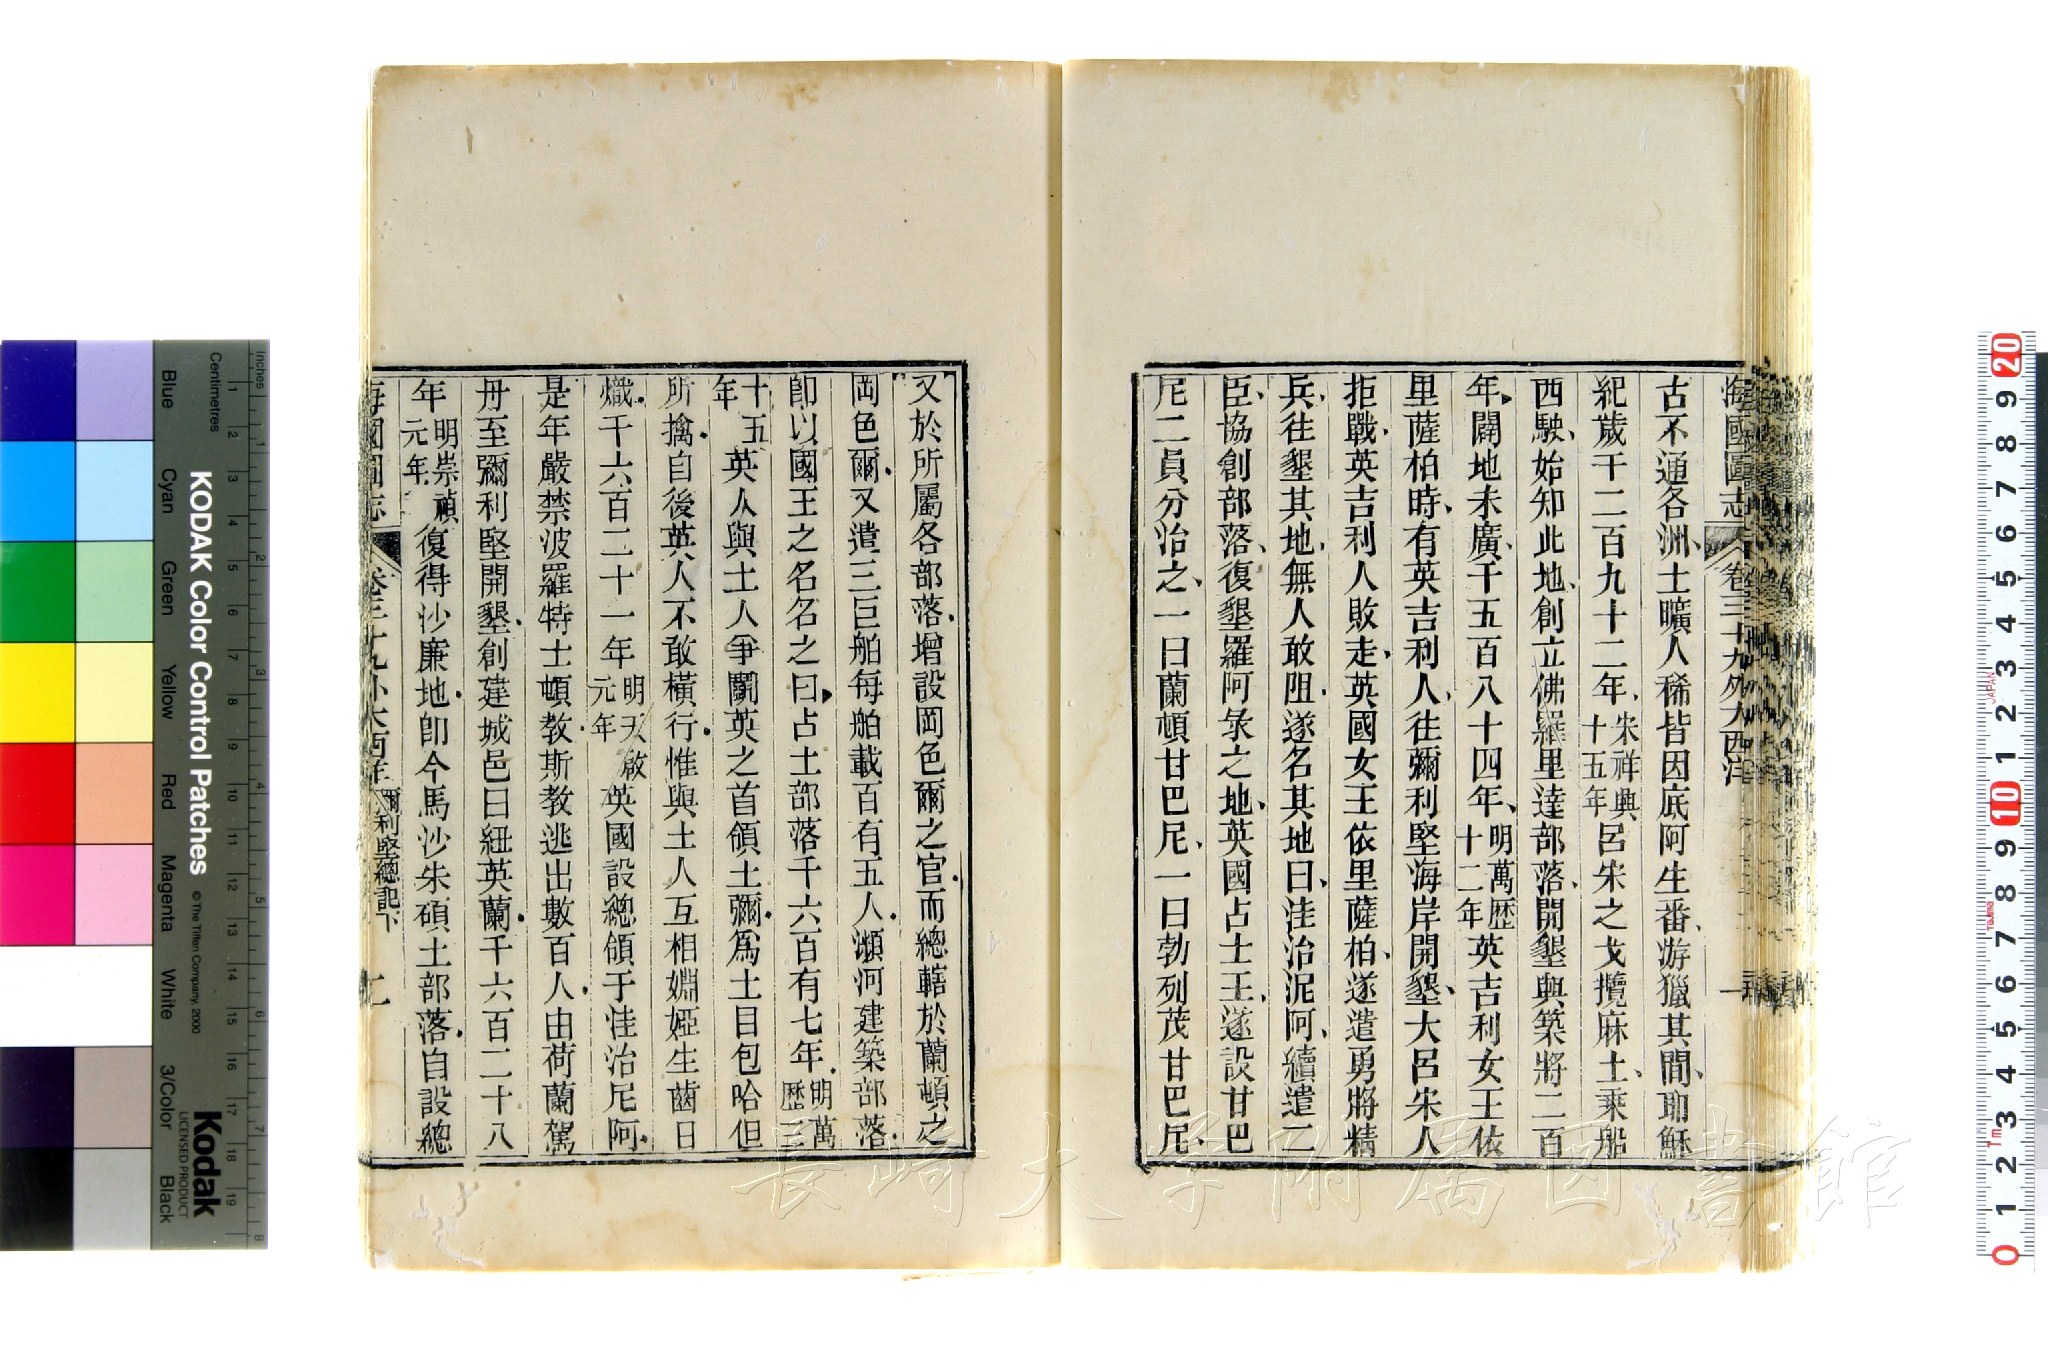 海國圖志 卷三十九 外大西洋 一
古不通各洲土曠人稀皆因底阿生番游獵其間耶穌
紀歲千二百九十二年宋祥興十五年呂宋之戈攬麻士乘船
西駛始知此地創立佛羅里達部落開墾與築將二百
年闢地未廣千五百八十四年明萬歷十二年英吉利女王依
里薩柏時有英吉利人往彌利堅海岸開墾大呂宋人
拒戰英吉利人敗走英國女王依里薩柏遂遣勇將精
兵往墾其地無人敢阻遂名其地曰洼治泥阿續遣二
臣協創部落復墾羅阿彔之地英國占士王遂設甘巴
尼二員分治之一曰蘭頓甘巴尼一曰勃列茂甘巴尼
又於所屬各部落增設岡色爾之官而總轄於蘭頓之
岡色爾又遣三巨舶每舶載百有五人瀕河建築部落
卽以國王之名名之曰占士部落千六百有七年明萬歷三
十五年英人與土人爭鬭英之首領士彌爲土目包哈但
所擒自後英人不敢橫行惟與土人互相婣婭生齒日
熾千六百二十一年明天啟元年英國設總領于洼治尼阿
是年嚴禁波羅特士頓教斯教逃出數百人由荷蘭駕
舟至彌利堅開墾創建城邑曰紐英蘭千六百二十八
年明崇禎元年復得沙廉地卽今馬沙朱碩土部落自設總
海國圖志 卷三十九 外大西洋 彌利堅總記下 二
長崎大学附属図書館
KODAK Color Control Patches © The Tiffen Company, 2000
Kodak
LICENSED PRODUCT
Blue Cyan Green Yellow Red Magenta White 3/Color Black
Inches 1 2 3 4 5 6 7 8
Centimetres 1 2 3 4 5 6 7 8 9 10 11 12 13 14 15 16 17 18 19
20 9 8 7 6 5 4 3 2 1 10 9 8 7 6 5 4 3 2 1 0
JAPAN
Tajima